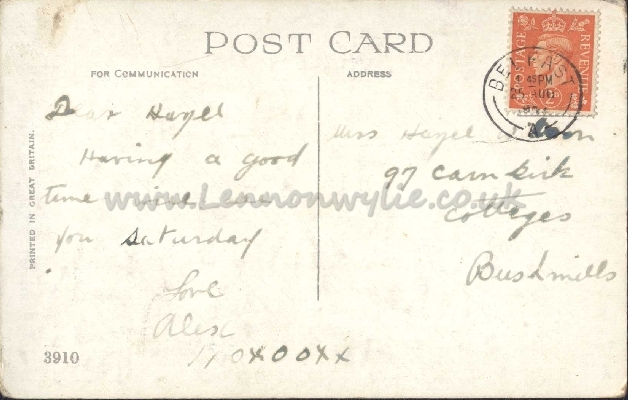 POST CARD
FOR COMMUNICATION
ADDRESS
PRINTED IN GREAT BRITAIN.
POSTAGE
REVENUE
BELFAST
45 PM
25 AUG
Dear Hazel
Having a good
time will see
you Saturday
Love
Alex
XOXOOXX
Miss Hazel
97 Carnkirk
Cottages
Bushmills
www.Lennonwylie.co.uk
3910